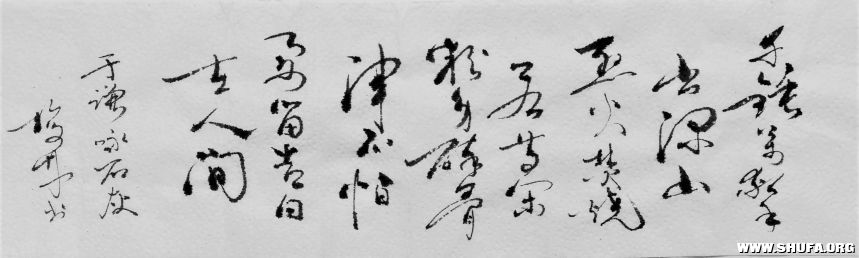 千锤万擊
出深山
烈火焚烧
若等闲
粉身碎骨
浑不怕
要留青白
在人间
于谦咏石灰
书
WWW.SHUFA.ORG